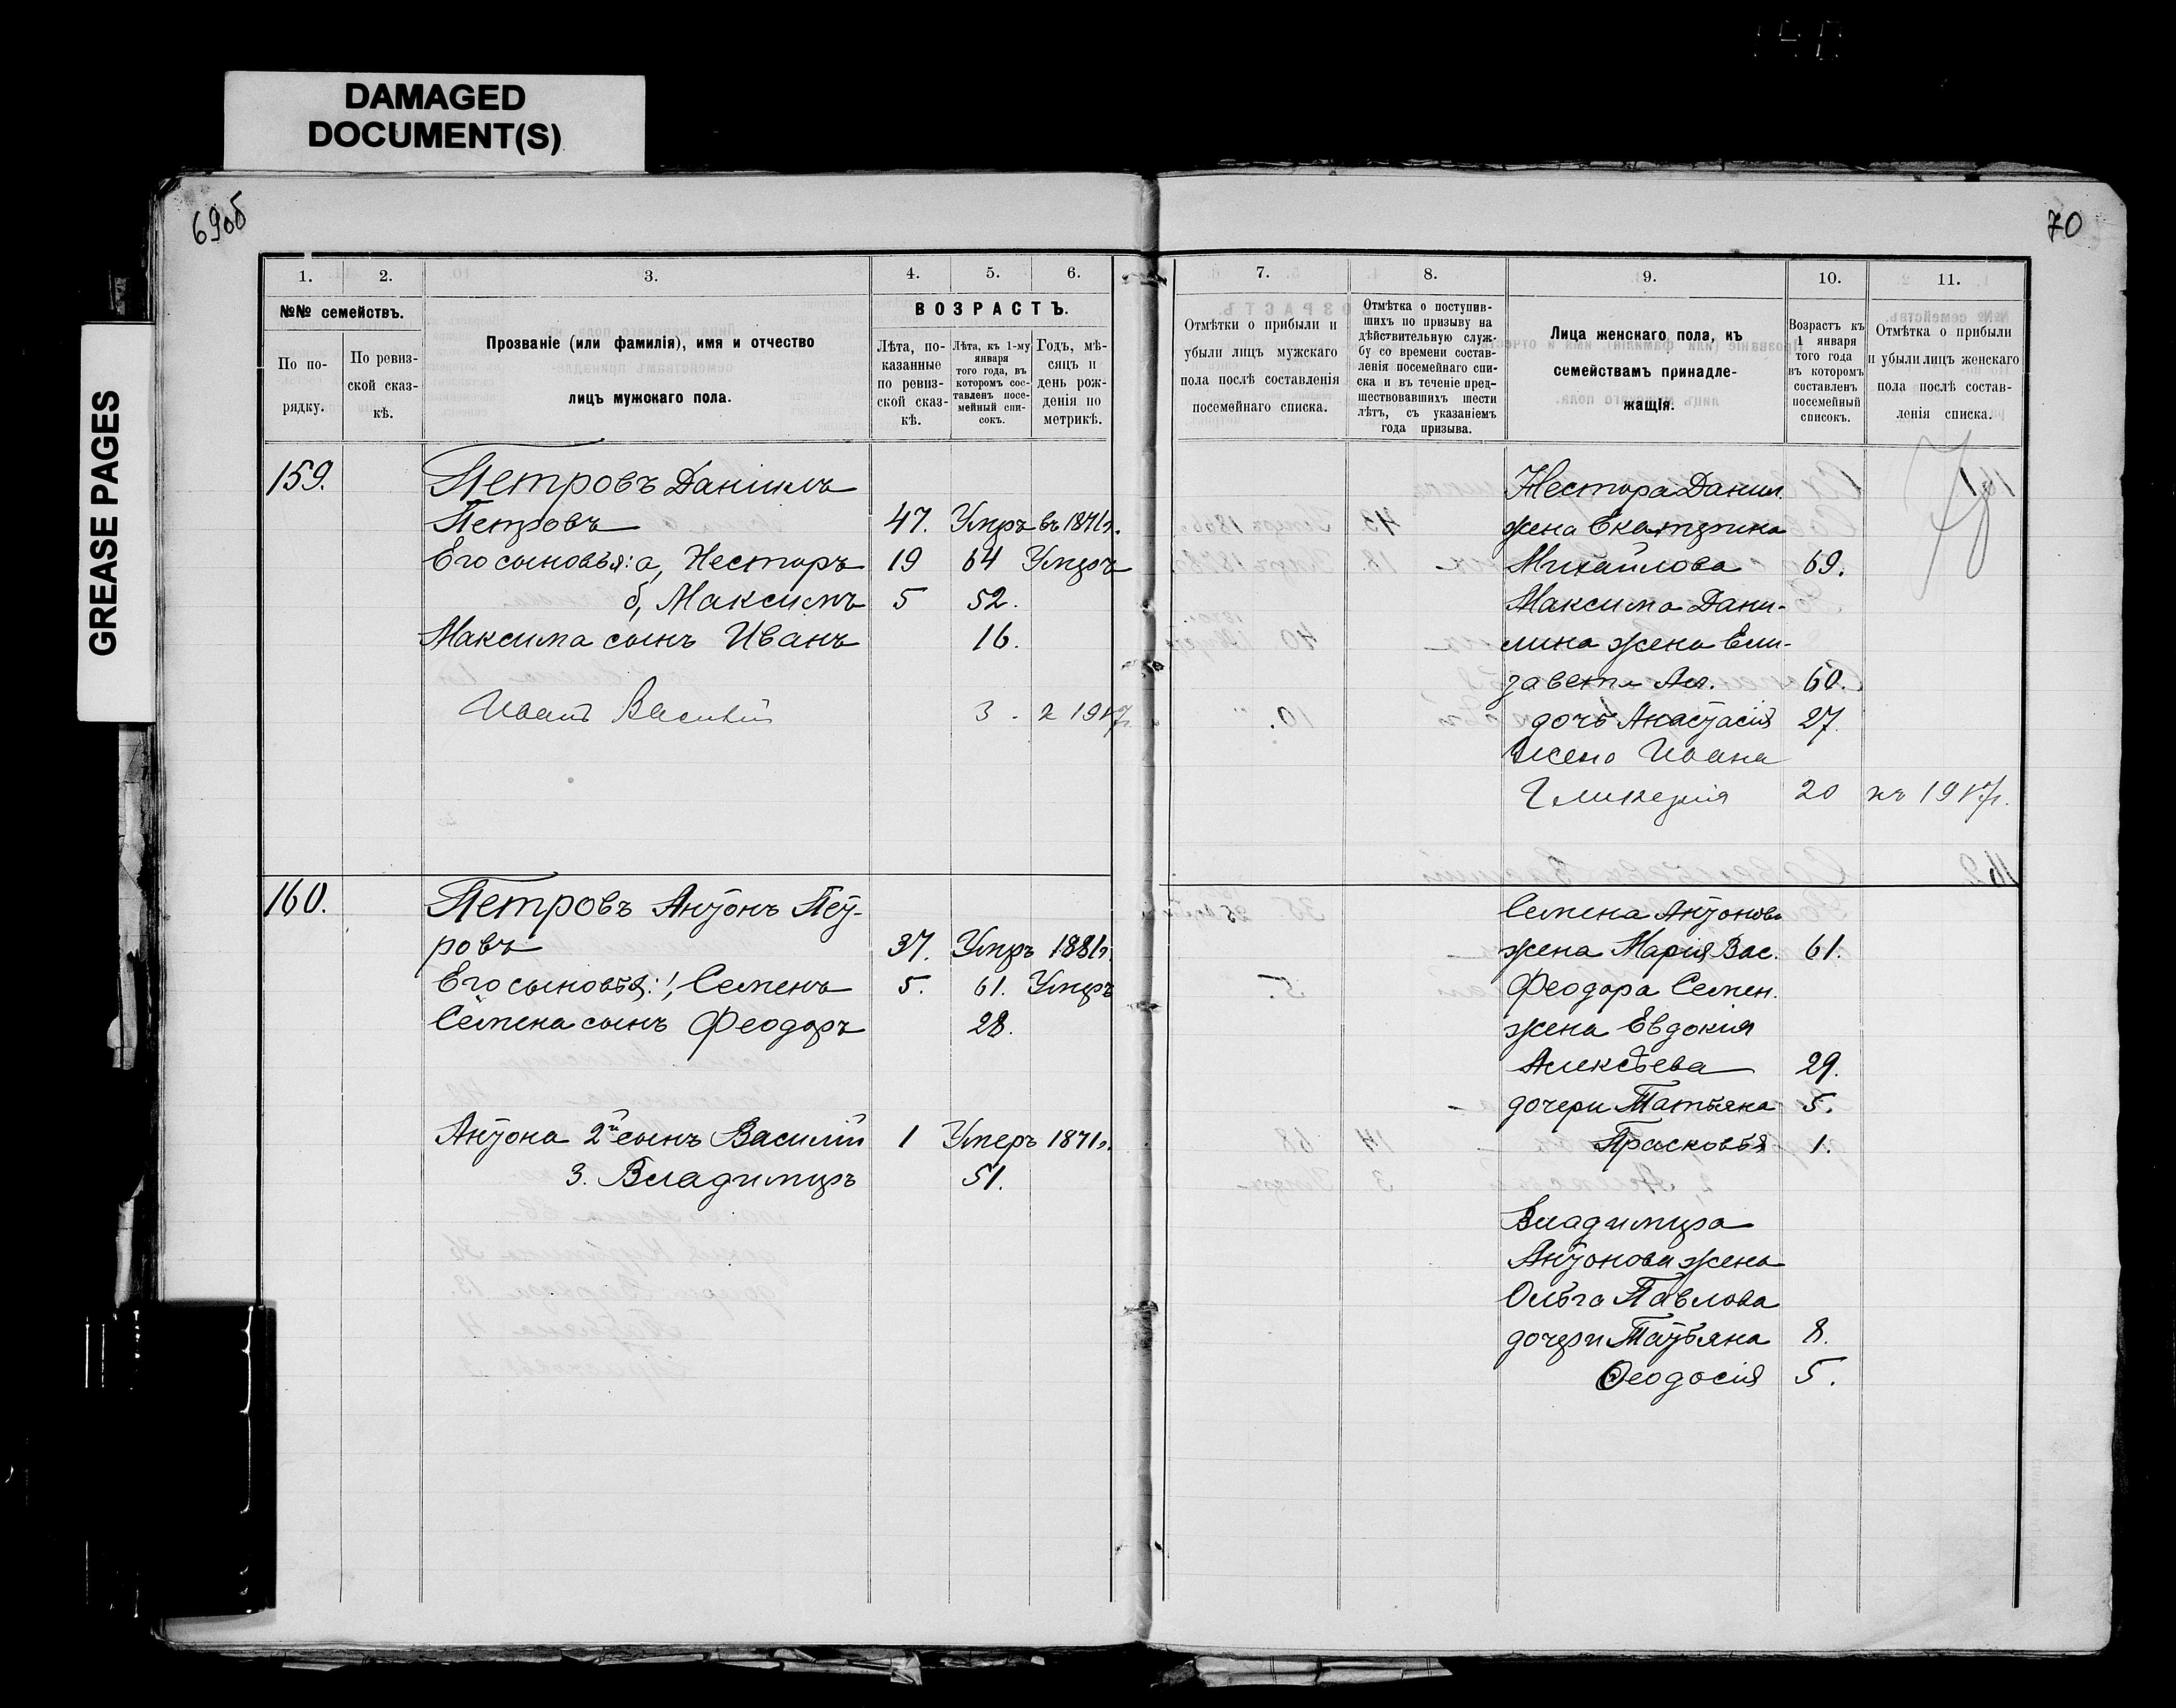 DAMAGED
DOCUMENT(S)
GREASE PAGES
69об
1. 2. 3. 4. 5. 6.
№№ семействъ.
По по-
рядку.
По ревиз-
ской сказ-
кѣ.
Прозваніе (или фамилія), имя и отчество
лицъ мужскаго пола.
ВОЗРАСТЪ.
Лѣта, по-
казанные
по ревиз-
ской сказ-
кѣ.
Лѣта, къ 1-му
января
того года, въ
которомъ сос-
тавленъ посе-
мейный спи-
сокъ.
Годъ, мѣ-
сяцъ и
день рож-
денія по
метрикѣ.
159. Петровъ Даніилъ
Петровъ 47. Умеръ въ 1871г.
Его сыновья: а, Несторъ 19 64 Умеръ
б, Максимъ 5 52.
Максима сынъ Иванъ 16.
Иванъ Василій 3. 2 1917г.
160. Петровъ Антонъ Пет-
ровъ 37. Умеръ 1881г.
Его сыновья: 1, Семенъ 5. 61. Умеръ
Семена сынъ Феодоръ 28.
Антона 2й сынъ Василій 1 Умеръ 1871г.
3. Владимиръ 51.
70
7. 8. 9. 10. 11.
Отмѣтки о прибыли и
убыли лицъ мужскаго
пола послѣ составленія
посемейнаго списка.
Отмѣтка о поступив-
шихъ по призыву на
дѣйствительную служ-
бу со времени состав-
ленія посемейнаго спи-
ска и въ теченіе пред-
шествовавшихъ шести
лѣтъ, съ указаніемъ
года призыва.
Лица женскаго пола, къ
семействамъ принадле-
жащія.
Возрастъ къ
1 января
того года
въ которомъ
составленъ
посемейный
списокъ.
Отмѣтка о прибыли
и убыли лицъ женскаго
пола послѣ состав-
ленія списка.
Нестора Данил.
жена Екатерина
Михайлова 69.
Максима Дани-
лина жена Ели-
завета Ал. 50.
дочь Анастасія 27.
Жена Ивана
Гликерия 20 къ 1917г.
Семена Антонова
жена Марія Вас. 61.
Феодора Семен.
жена Евдокия
Алексѣева 29.
дочери Татьяна 5.
Прасковья 1.
Владимира
Антонова жена
Ольга Павлова
дочери Татьяна 8.
Феодосія 5.